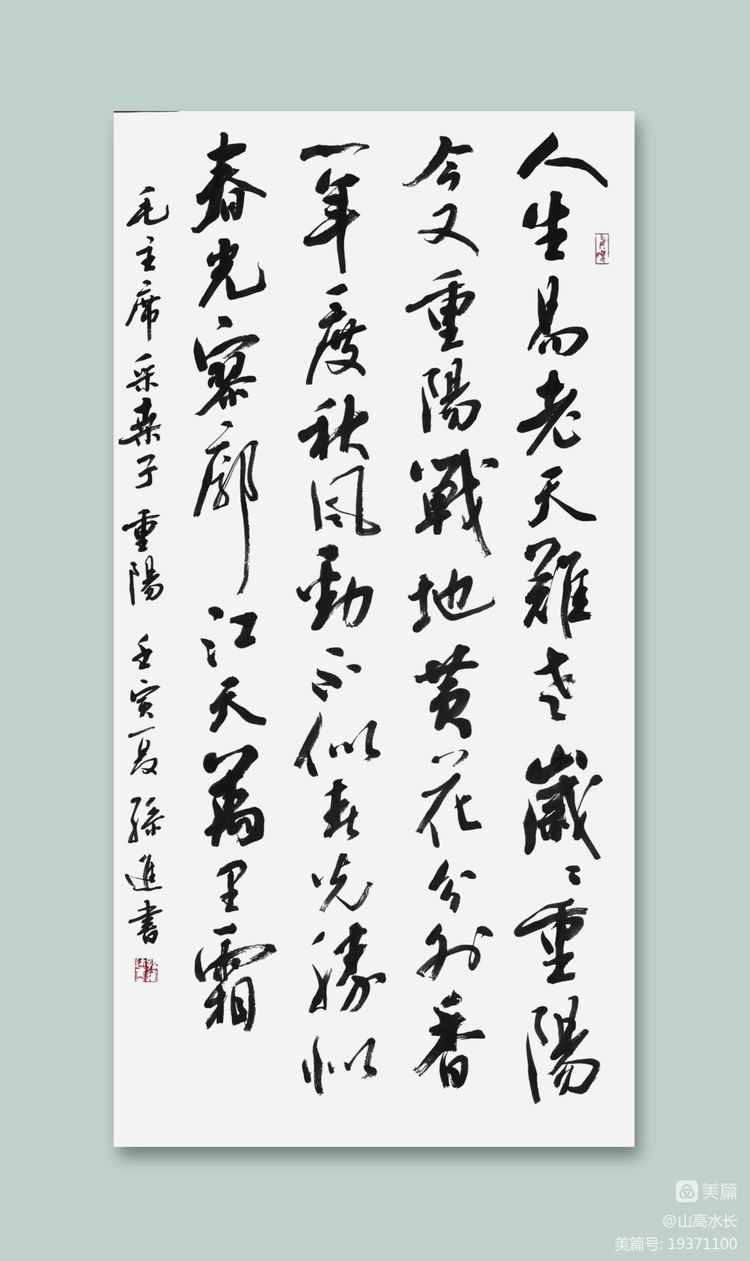 人生易老天難老歲〻重陽
今又重陽戰地黄花分外香
一年一度秋風勁不似春光勝似
春光寥廓江天萬里霜
毛主席采桑子重陽 壬寅夏 孫進書
美篇
@山高水长
美篇号: 19371100